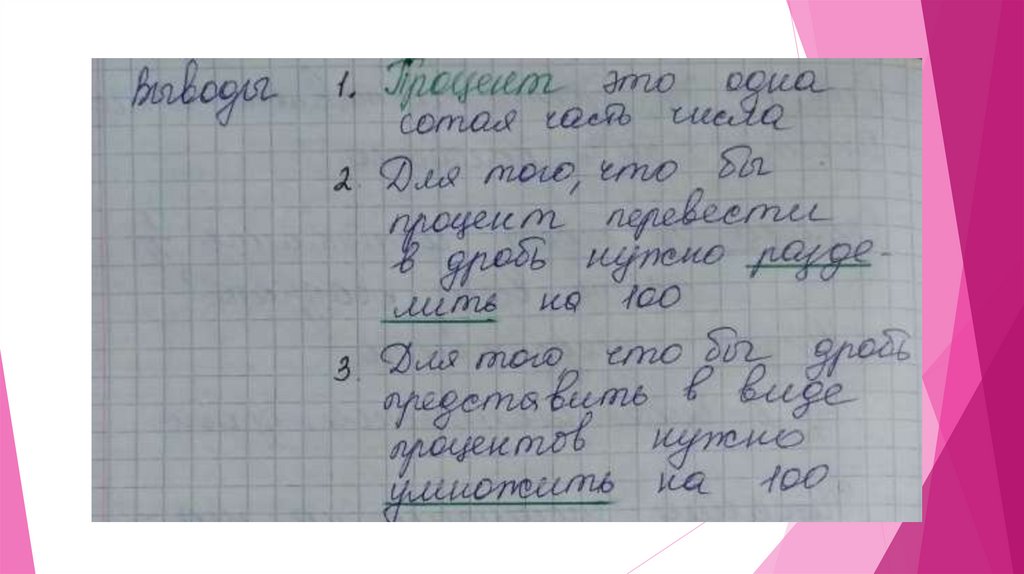 Выводы 1. Процент это одна
сотая часть числа
2. Для того, что бы
процент перевести
в дробь нужно разде-
лить на 100
3. Для того, что бы дробь
представить в виде
процентов нужно
умножить на 100